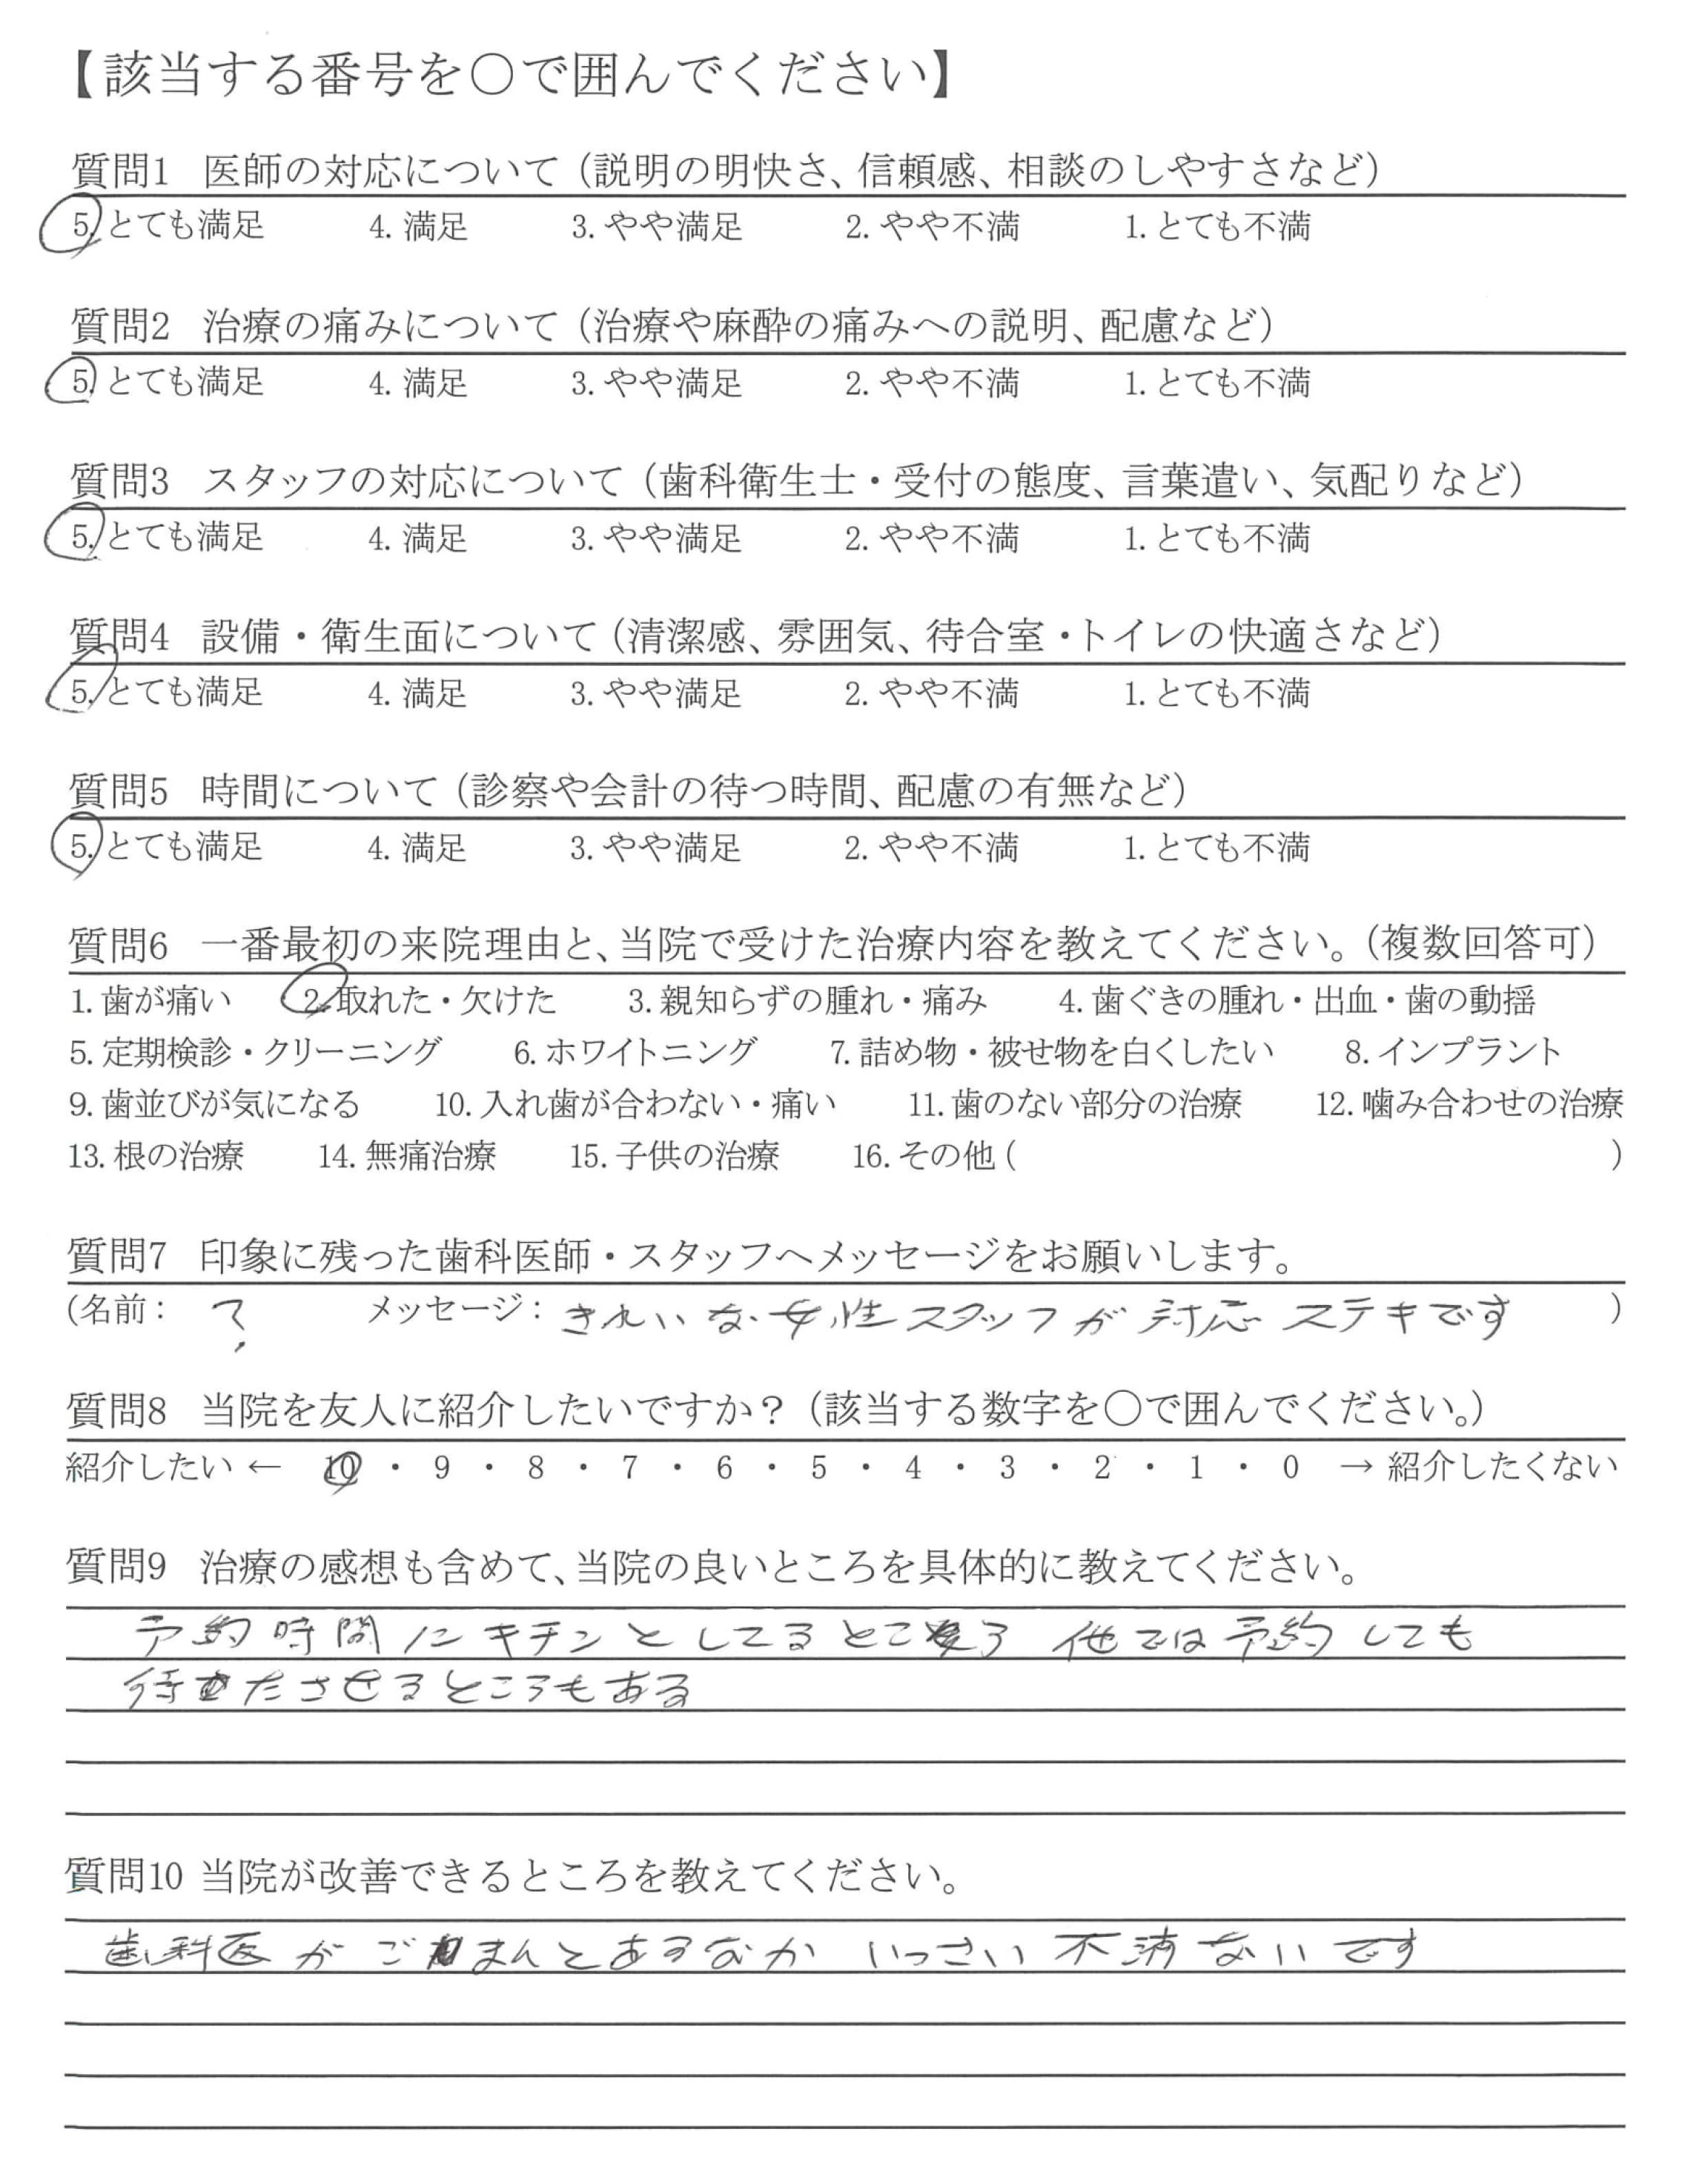 【該当する番号を〇で囲んでください】
質問1 医師の対応について（説明の明快さ、信頼感、相談のしやすさなど）
5. とても満足 4. 満足 3. やや満足 2. やや不満 1. とても不満
質問2 治療の痛みについて（治療や麻酔の痛みへの説明、配慮など）
5. とても満足 4. 満足 3. やや満足 2. やや不満 1. とても不満
質問3 スタッフの対応について（歯科衛生士・受付の態度、言葉遣い、気配りなど）
5. とても満足 4. 満足 3. やや満足 2. やや不満 1. とても不満
質問4 設備・衛生面について（清潔感、雰囲気、待合室・トイレの快適さなど）
5. とても満足 4. 満足 3. やや満足 2. やや不満 1. とても不満
質問5 時間について（診察や会計の待つ時間、配慮の有無など）
5. とても満足 4. 満足 3. やや満足 2. やや不満 1. とても不満
質問6 一番最初の来院理由と、当院で受けた治療内容を教えてください。（複数回答可）
1. 歯が痛い 2. 取れた・欠けた 3. 親知らずの腫れ・痛み 4. 歯ぐきの腫れ・出血・歯の動揺
5. 定期検診・クリーニング 6. ホワイトニング 7. 詰め物・被せ物を白くしたい 8. インプラント
9. 歯並びが気になる 10. 入れ歯が合わない・痛い 11. 歯のない部分の治療 12. 噛み合わせの治療
13. 根の治療 14. 無痛治療 15. 子供の治療 16. その他（ ）
質問7 印象に残った歯科医師・スタッフへメッセージをお願いします。
（名前： ？ メッセージ： きれいな女性スタッフが対応ステキです ）
質問8 当院を友人に紹介したいですか？（該当する数字を〇で囲んでください。）
紹介したい ← 10 ・ 9 ・ 8 ・ 7 ・ 6 ・ 5 ・ 4 ・ 3 ・ 2 ・ 1 ・ 0 → 紹介したくない
質問9 治療の感想も含めて、当院の良いところを具体的に教えてください。
予約時間にキチンとしてるところ 他では予約しても
待たさせるところもある
質問10 当院が改善できるところを教えてください。
歯科医がごまんとあるなか いっさい不満ないです